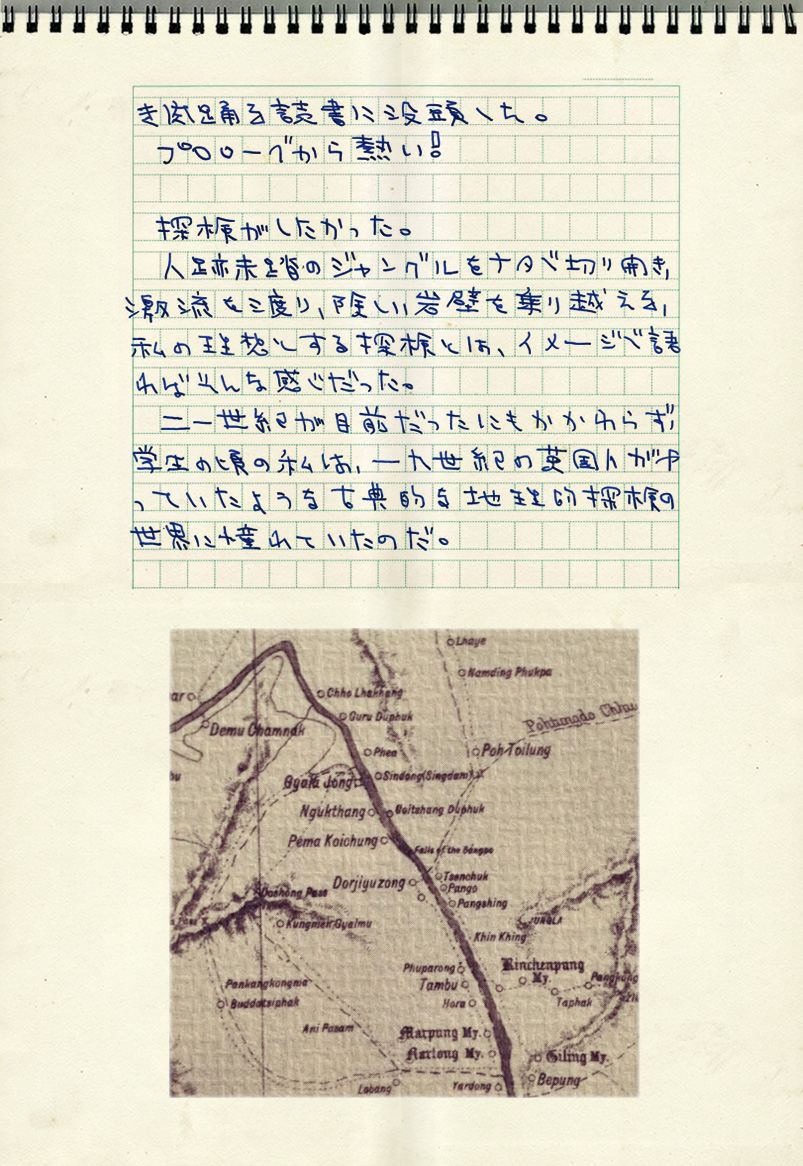 き肉踊る読書に没頭した。
プロローグから熱い!
探検がしたかった。
人跡未踏のジャングルをナタで切り開き、
激流を渡り、険しい岩壁を乗り越える、
私の理想とする探検とは、イメージで語
ればそんな感じだった。
二一世紀が目前だったにもかかわらず、
学生の頃の私は、一九世紀の英国人がや
っていたような古典的な地理的探検の
世界に憧れていたのだ。
Lhaye
Namding Phukpa
Chho Lhakhang
Guru Duphuk
Demu Chamnak
Phea
Poh Toilung
Gyala Jong
Sindong (Singdam)
Ngukthang
Goitshang Duphuk
Pema Koichung
Falls of the Sangpo
Dorjiyuzong
Tsenchuk
Pango
Pangshing
Doshong Pass
Kungmen Gyalmu
JUNGLA
Khin Khing
Phuparong
Rinchenpung My.
Tambu
Pankangkongma
Hora
Taphak
Buddatsiphak
Ani Pasam
Marpung My.
Narlong My.
Giling My.
Lobang
Yardong
Bepung